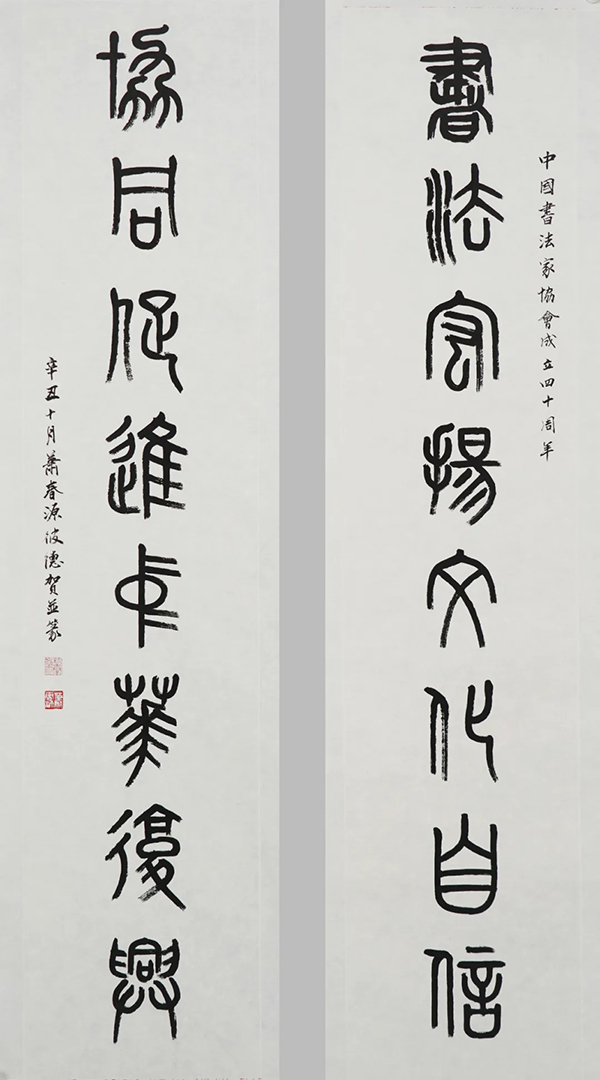 中國書法家協會成立四十周年
書法宏揚文化自信
協同促進中華復興
辛丑十月蕭春源波德賀並篆